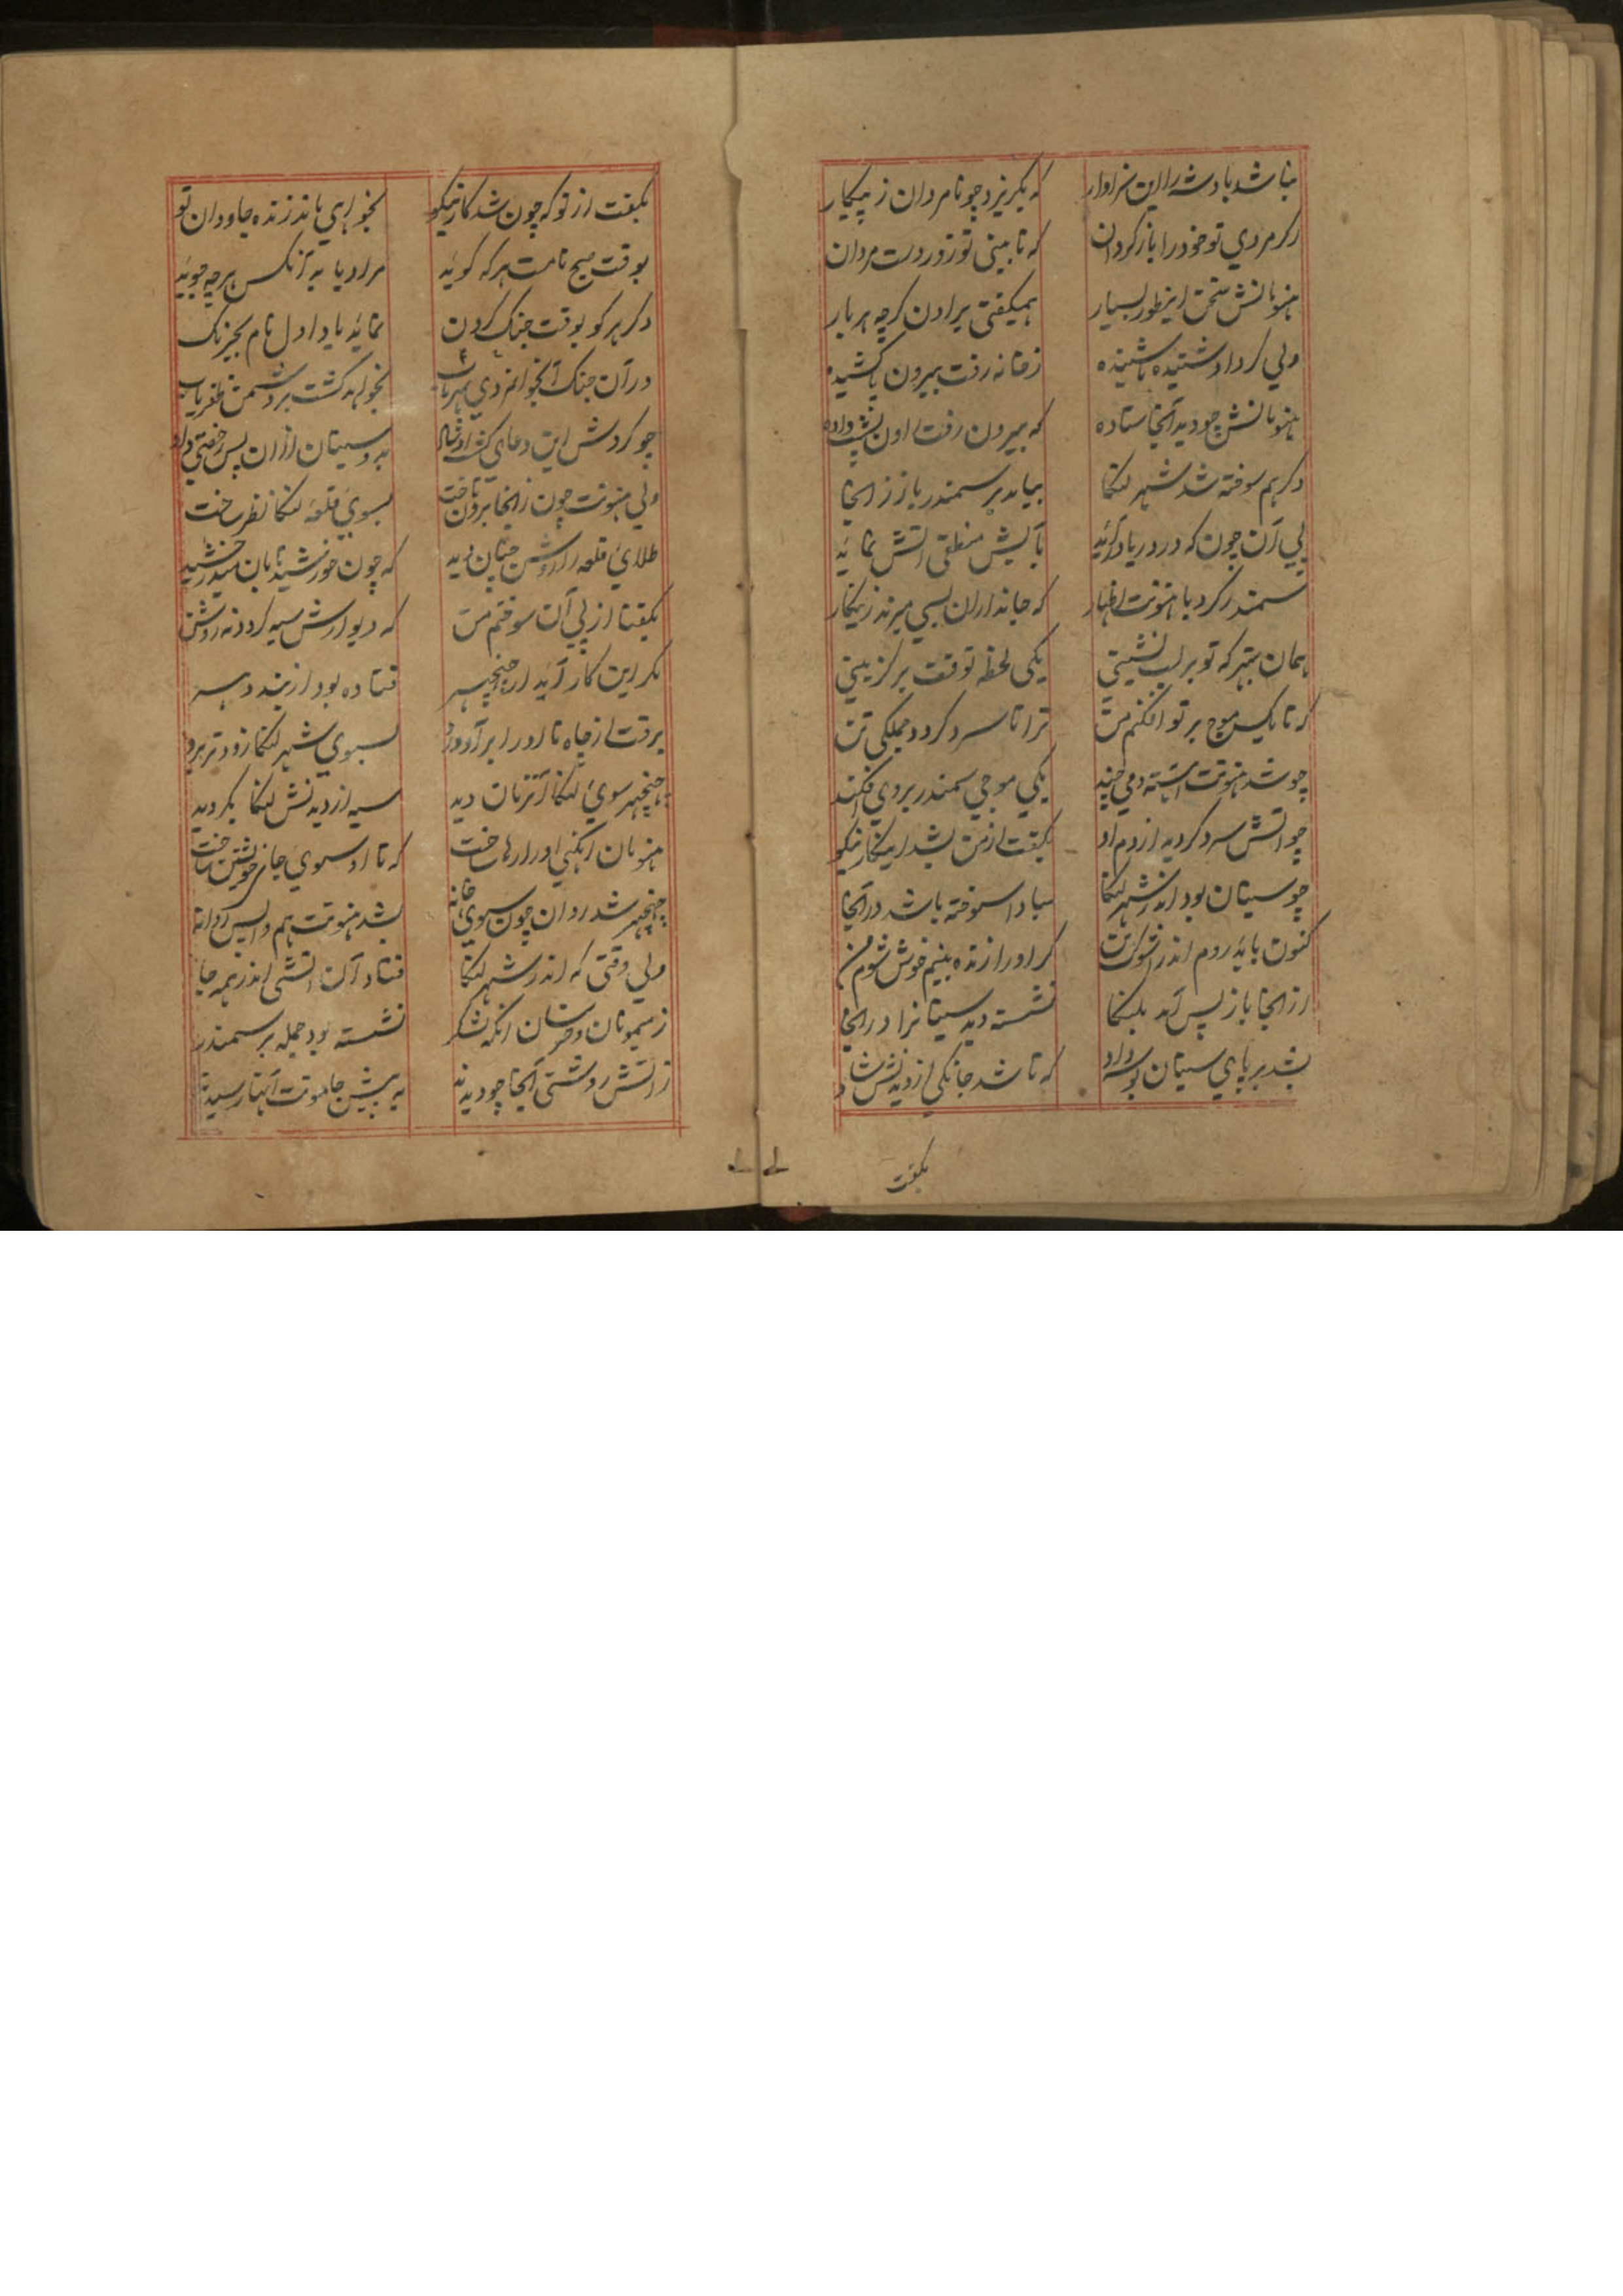 نباشد پادشه را این سزاوار که بگریزد چو نامردان ز پیکار
اگر مردی تو خود را باز گردان که تا بینی تو زور دست مردان
هنومانش سخن اینطور بسیار همیگفتی براون گرچه هر بار
ولی کرد او شنیده ناشنیده ز خانه رفت بیرون پا کشیده
هنومانش چو دید آنجا ستاده که بیرون رفت راون پشت داده
دگر هم سوخته شد شهر لنکا بیامد بر سمندر باز زانجا
پی آن چون که در دریا در آید بآبش منطفی آتش نماید
سمندر کرد با هنونت اظهار که جانداران بسی میرند زینکار
همان بهتر که تو بر لب نشینی یکی لحظه توقف برگزینی
که تا یک موج بر تو افکنم من ترا تا سرد گردد جملگی تن
چو شد هنونت استه دمی چند یکی موجی سمندر بر وی افکند
چو آتش سرد گردید از دم او بگفت از من بشد اینکار نیکو
چو سیتان بود اندر شهر لنکا مبادا سوخته باشد در آنجا
کنون باید روم اندر اشوکبن گر او را زنده بینم خوش شوم من
از آنجا باز پس آمد بلنکا نشسته دید سیتا را در آنجا
بشد بر پای سیتان بوسه داد که تا شد جانکی از دیدنش شاد
بگفت
بگفت از تو که چون شد کار نیکو بخواهی ماند زنده جاودان تو
بوقت صبح نامت هر که گوید مراد یابد آنکس هرچه جوید
دگر هر کو بوقت جنگ کردن نماید یاد اول نام بجرنگ
در آن جنگ آنجوانمردی بهر باب نخواهد گشت بر وی دشمن ظفریاب
چو کردش این دعای گشت او شاد بدو سیتان از آن پس رخصتی داد
ولی هنونت چون زانجا برون تاخت بسوی قلعه لنکا نظر ساخت
طلای قلعه را روشن چنان دید که چون خورشید تابان میدرخشید
بگفتا از پی آن سوختم من که دیوارش سیه گردد نه روشن
مگر این کار آید از جنیچر فتاده بود از بند دهسر
برفت از چاه تا او را برآورد بسوی شهر لنکا زودتر برد
جنیچر سوی لنکا آنزمان دید سیه از دیدنش لنکا بگردید
هنومان آنگهی او را رها ساخت که تا او سوی جای خویشتن تاخت
جنیچر شد روان چون سوی خانه بشد هنونت هم واپس روانه
ولی وقتی که اندر شهر لنکا فتاد آن آتشی اندر همه جا
ز میمونان و خرسان آنکه لشکر نشسته بود جمله بر سمندر
ز آتش روشنی آنجا چو دیدند به پیش جاموت آنها رسیدند